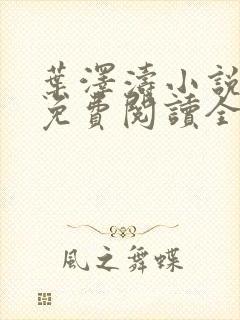 葉澤濤小說
免費閱讀全
風之舞蝶